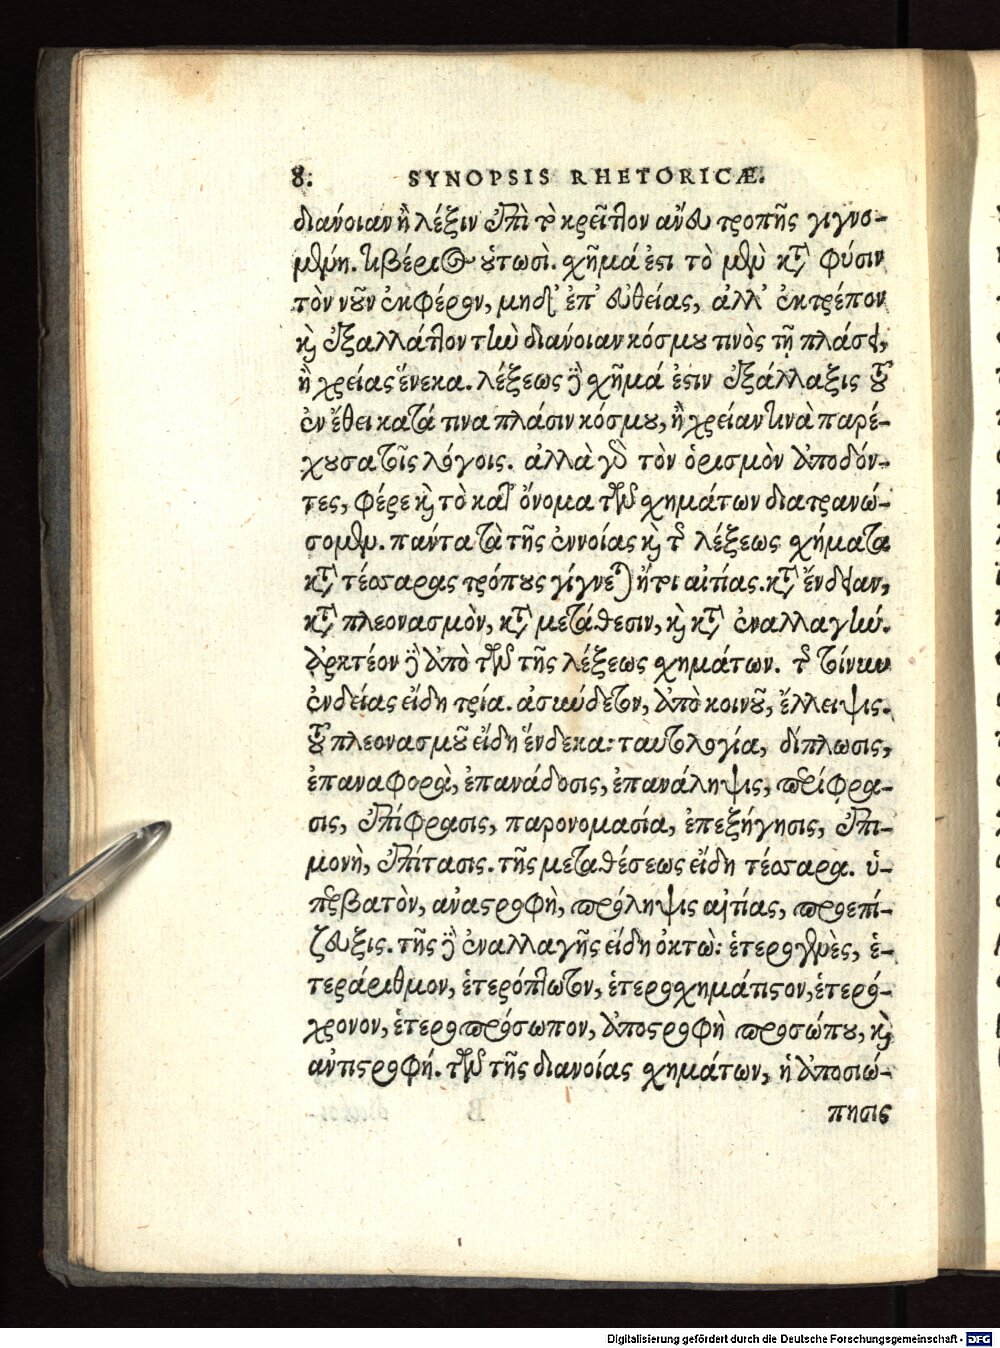 8. SYNOPSIS RHETORICÆ.
διάνοιαν ἢ λέξιν ἐπὶ τὸ κρεῖττον ἄνευ τροπῆς γιγνο-
μένη. τιβέριος οὑτωσὶ. χῆμά ἐστι τὸ μὲν κατὰ φύσιν
τὸν νοῦν ἐκφέρον, μηδ' ἐπ' εὐθείας, ἀλλ' ἐκτρέπον
καὶ ἐξαλλάττον τὴν διάνοιαν κόσμου τινὸς τῇ πλάσει,
ἢ χρείας ἕνεκα. λέξεως δὲ χῆμά ἐστιν ἐξάλλαξις τοῦ
ἐν ἔθει κατά τινα πλάσιν κόσμου, ἢ χρείαν τινὰ παρέ-
χουσα τοῖς λόγοις. ἀλλὰ γὰρ τὸν ὁρισμὸν ἀποδόν-
τες, φέρε καὶ τὸ κατ' ὄνομα τῶν χημάτων διατρανώ-
σομεν. πάντα τὰ τῆς ἐννοίας καὶ τῆς λέξεως χήματα
κατὰ τέσσαρας τρόπους γίγνεται ἤτοι αἰτίας. κατὰ ἔνδειαν,
κατὰ πλεονασμὸν, κατὰ μετάθεσιν, καὶ κατὰ ἐναλλαγήν.
ἀρκτέον δὲ ἀπὸ τῶν τῆς λέξεως χημάτων. τῆς τοίνυν
ἐνδείας εἴδη τρία. ἀσύνδετον, ἀπὸ κοινοῦ, ἔλλειψις.
τοῦ πλεονασμοῦ εἴδη ἕνδεκα: ταυτολογία, δίπλωσις,
ἐπαναφορὰ, ἐπανάδοσις, ἐπανάληψις, περίφρα-
σις, ἐπίφρασις, παρονομασία, ἐπεξήγησις, ἐπι-
μονὴ, ἐπίτασις. τῆς μεταθέσεως εἴδη τέσσαρα. ὑ-
περβατὸν, ἀναστροφὴ, πρόληψις αἰτίας, προεπί-
ζευξις. τῆς δὲ ἐναλλαγῆς εἴδη ὀκτὼ: ἑτερογενὲς, ἑ-
τεράριθμον, ἑτερόπτωτον, ἑτεροχημάτιστον, ἑτερό-
χρονον, ἑτεροπρόσωπον, ἀποστροφὴ προσώπου, καὶ
ἀντιστροφή. τῶν τῆς διανοίας χημάτων, ἡ ἀποσιώ-
πησις
Digitalisierung gefördert durch die Deutsche Forschungsgemeinschaft - DFG